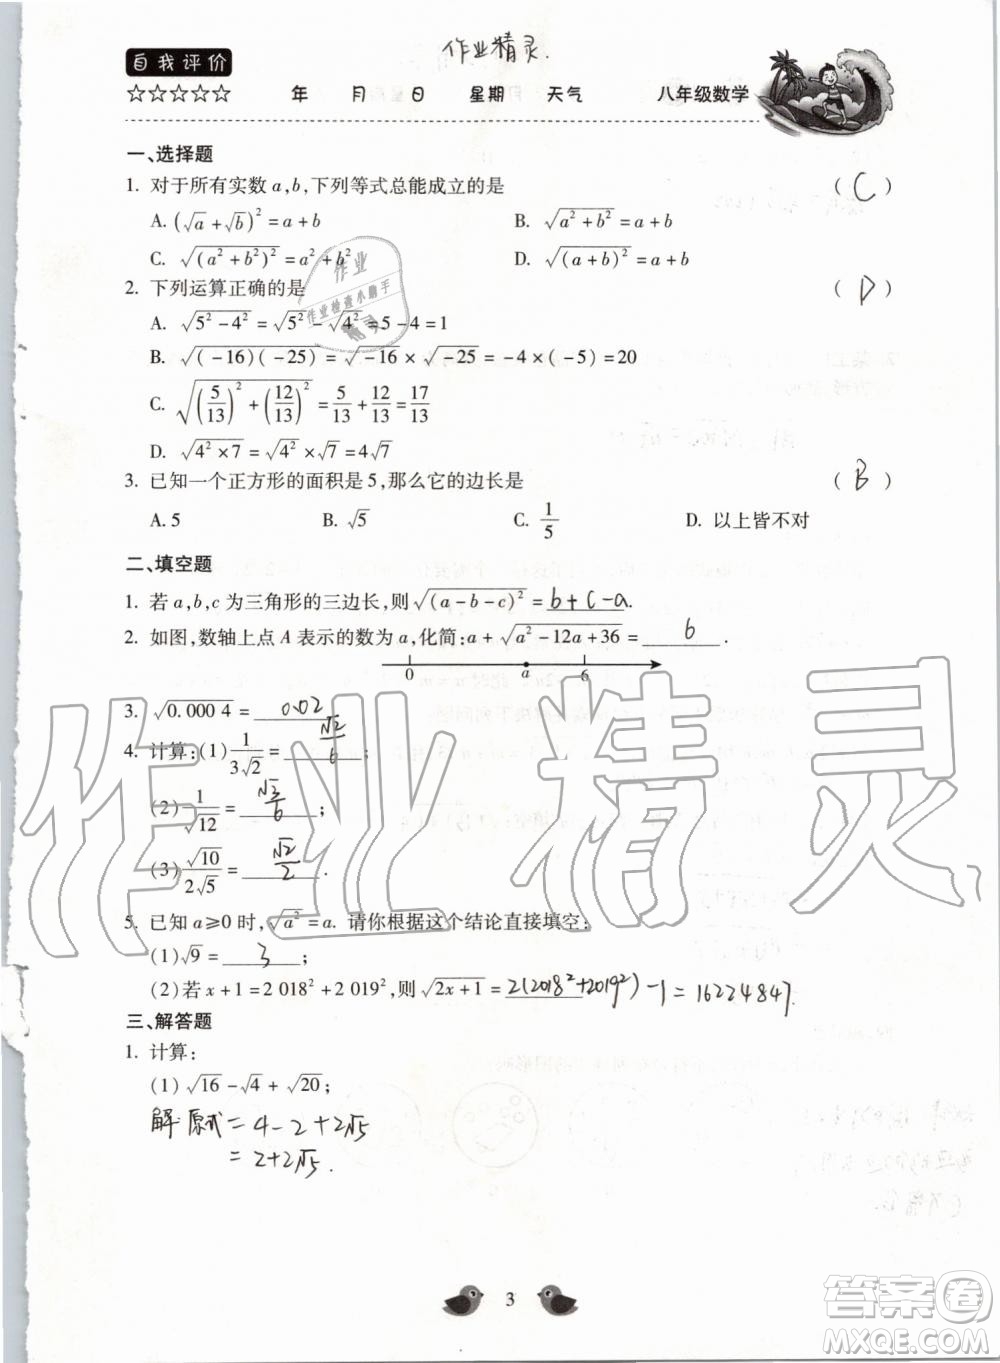 作业精灵.
自我评价
☆☆☆☆☆ 年 月 日 星期 天气 八年级数学
一、选择题
1. 对于所有实数 a,b,下列等式总能成立的是 ( C )
A. (√a+√b)²=a+b B. √(a²+b²)=a+b
C. √((a²+b²)²)=a²+b² D. √((a+b)²)=a+b
2. 下列运算正确的是 ( D )
A. √(5²-4²)=√5²-√4²=5-4=1
B. √((-16)(-25))=√-16×√-25=-4×(-5)=20
C. √((5/13)²+(12/13)²)=5/13+12/13=17/13
D. √(4²×7)=√4²×√7=4√7
3. 已知一个正方形的面积是 5,那么它的边长是 ( B )
A. 5 B. √5 C. 1/5 D. 以上皆不对
二、填空题
1. 若 a,b,c 为三角形的三边长,则√((a-b-c)²)=b+c-a.
2. 如图,数轴上点 A 表示的数为 a,化简:a+√(a²-12a+36)=6.
0 a 6
3. √0.000 4=0.02
4. 计算:(1)1/(3√2)=√2/6;
(2)1/√12=√3/6;
(3)√10/(2√5)=√2/2.
5. 已知 a≥0时,√a²=a. 请你根据这个结论直接填空:
(1)√9=3;
(2)若 x+1=2 018²+2 019²,则√(2x+1)=2(2018²+2019²)-1=16224847.
三、解答题
1. 计算:
(1)√16-√4+√20;
解:原式=4-2+2√5
=2+2√5.
3
作业
作业检查小助手
精灵
作业精灵
答案圈
MXQE.COM